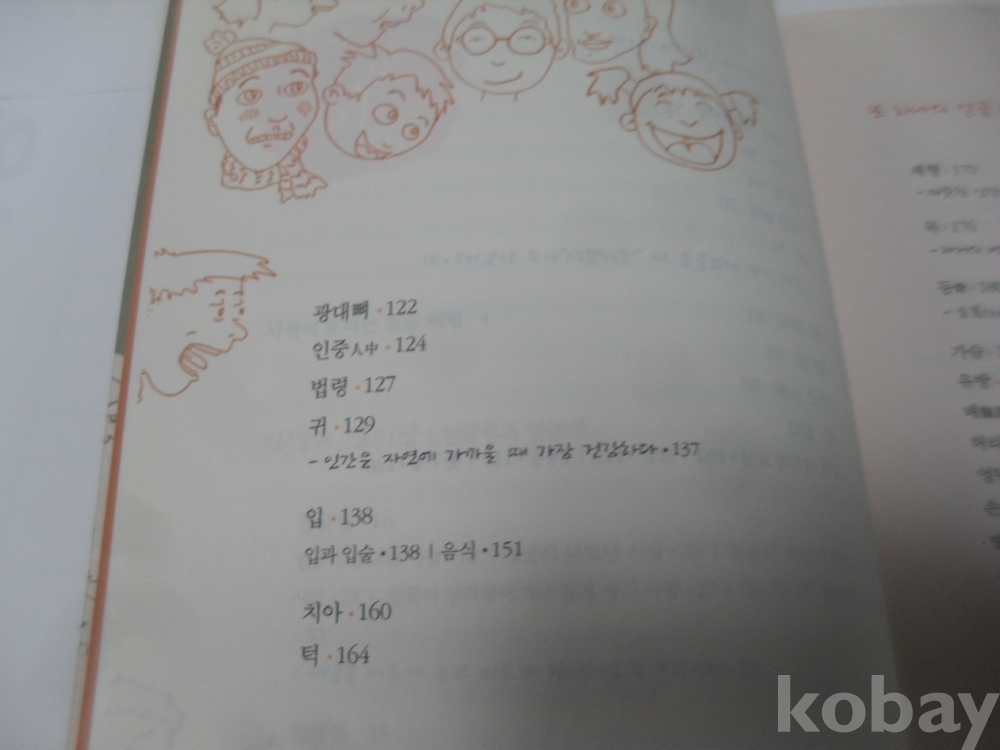 광대뼈 · 122
인중人中 · 124
법령 · 127
귀 · 129
- 인간은 자연에 가까울 때 가장 건강하다 · 137
입 · 138
입과 입술 · 138 | 음식 · 151
치아 · 160
턱 · 164
얼굴
· 175
· 176
가슴 ·
유방 ·
kobay